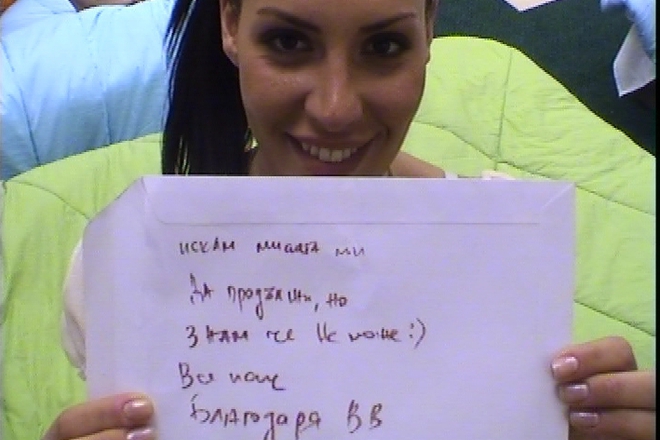 искам мисията ми
Да продължи, но
знам че не може :)
Все пак
Благодаря ВВ